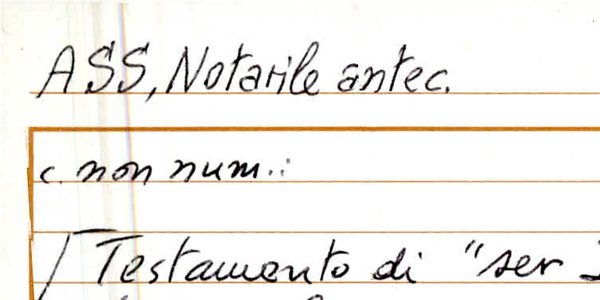 ASS, Notarile antec.
c. non num.:
[Testamento di "ser